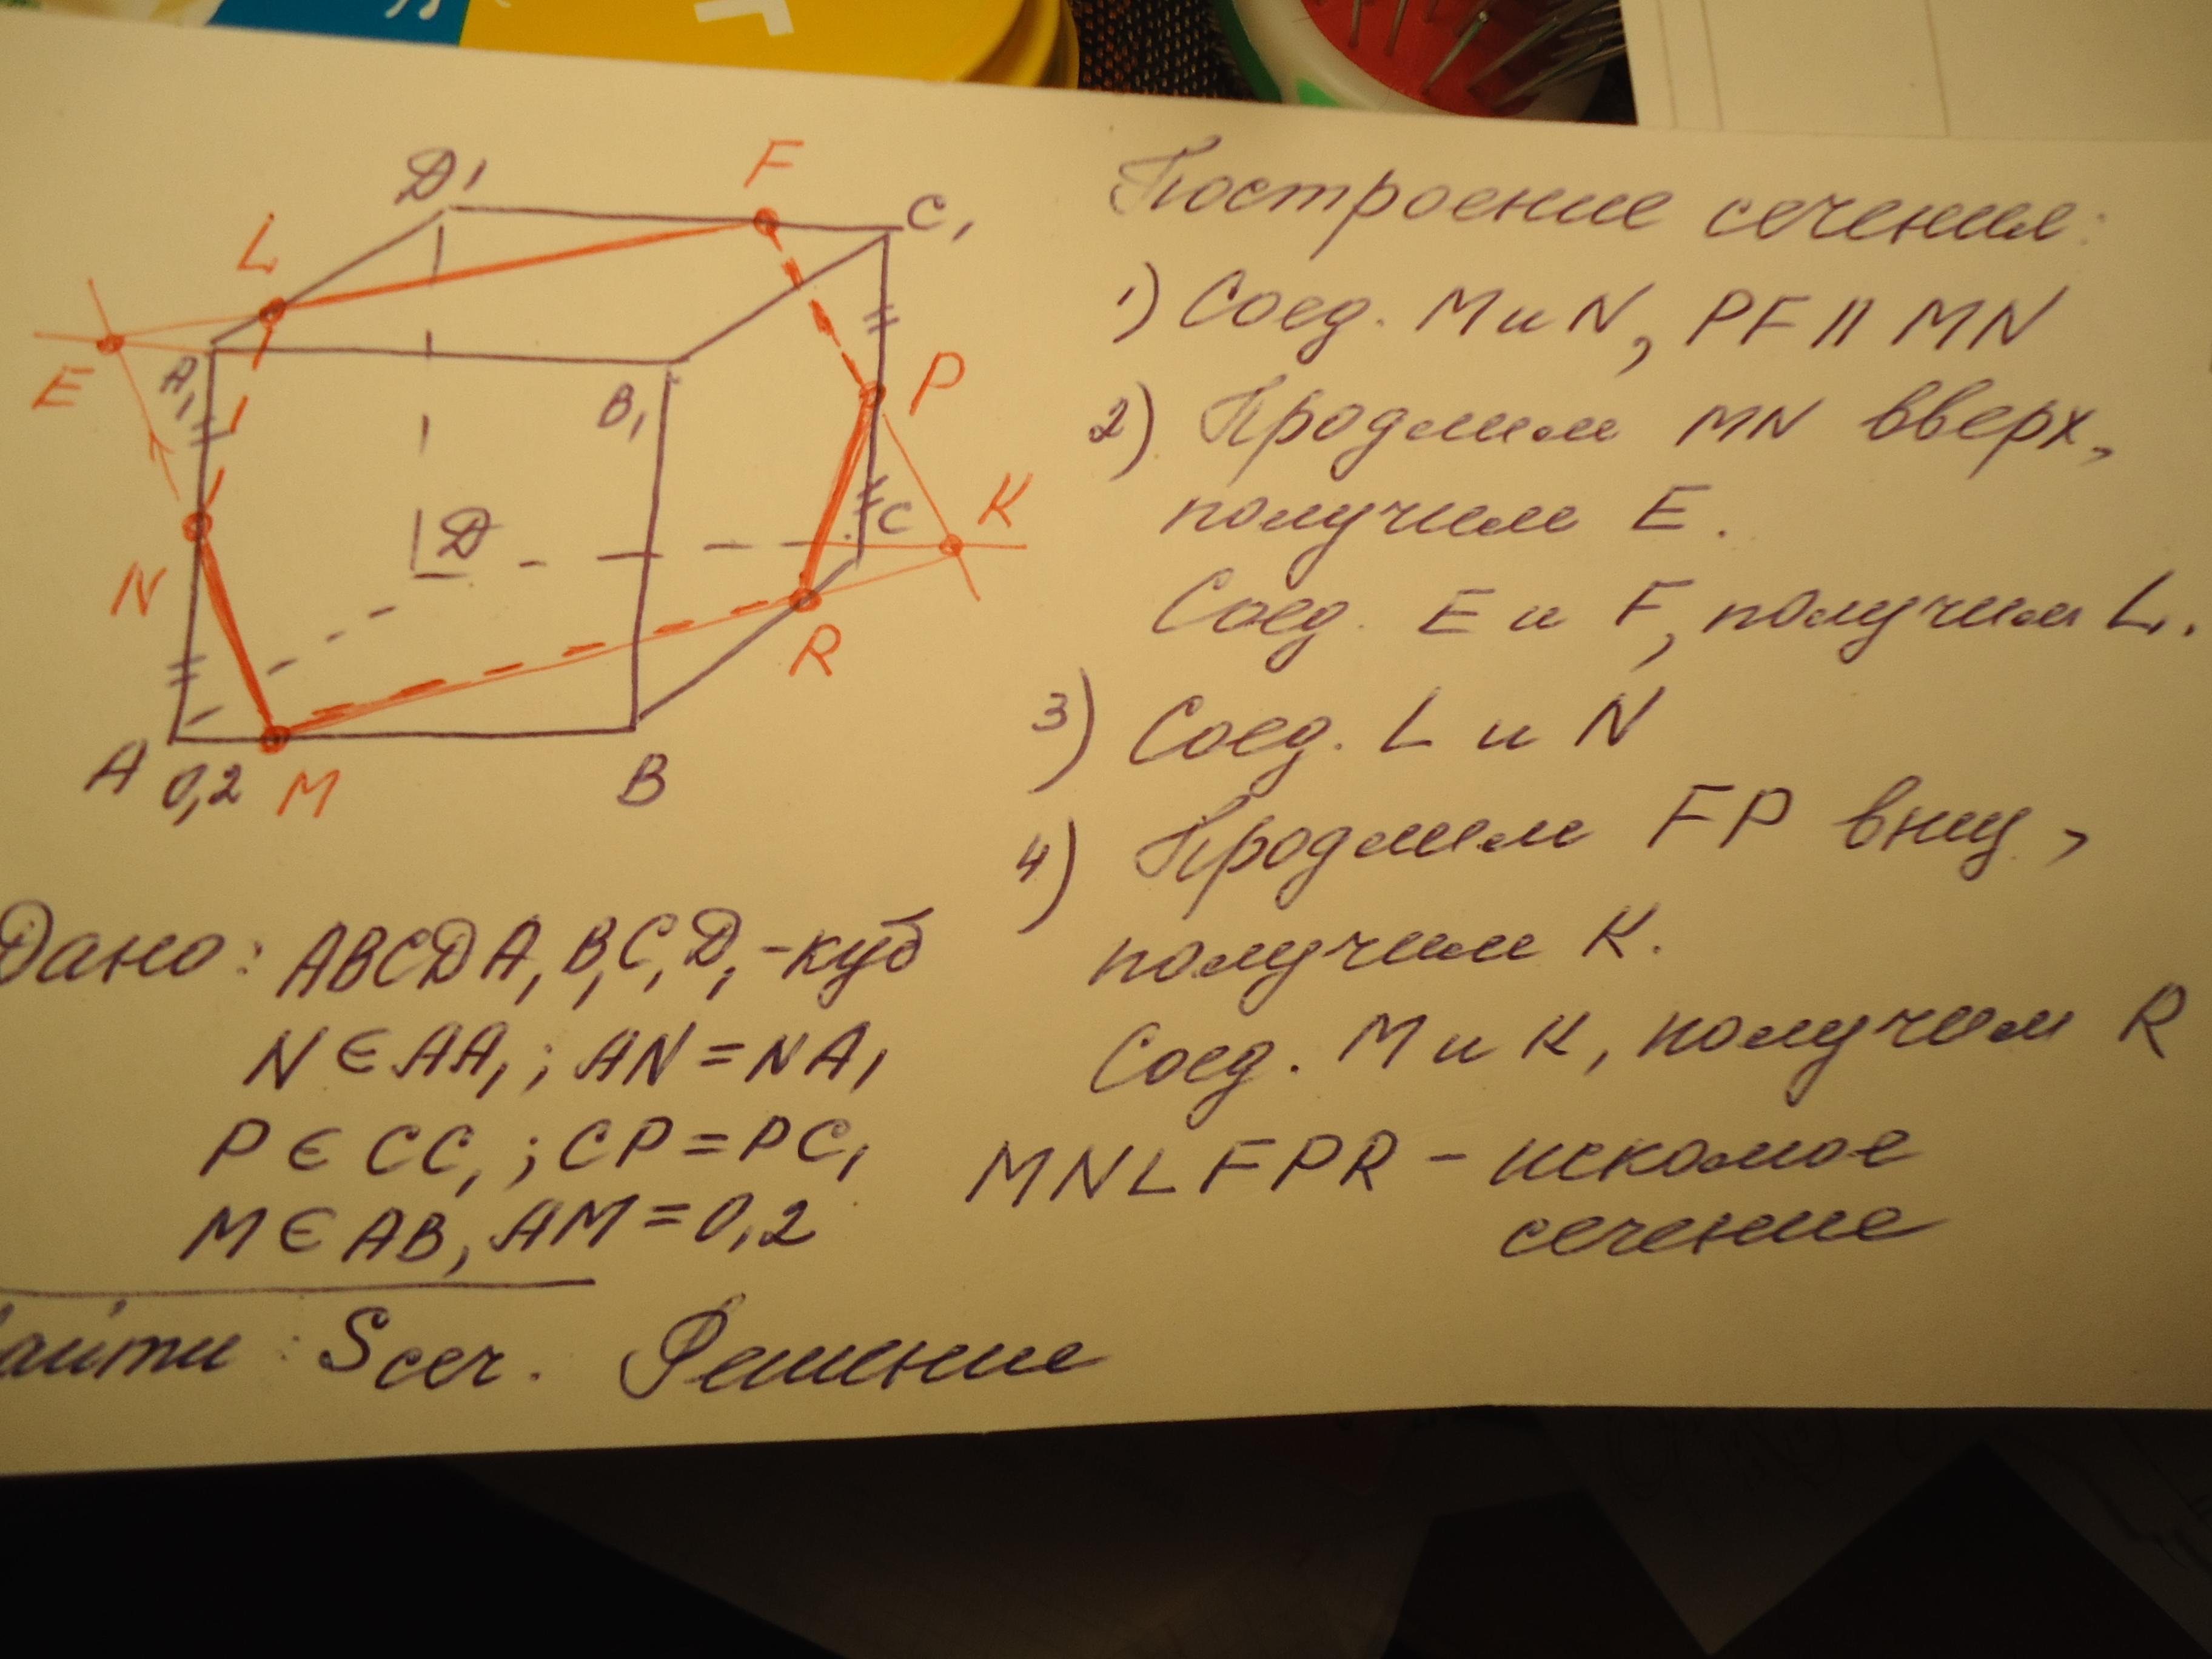 D1
F
C1
L
E
A1
B1
P
D
C
K
N
R
A
0,2
M
B
Построение сечения:
1) Соед. M и N, PF || MN
2) Продлим MN вверх,
получим E.
Соед. E и F, получим L.
3) Соед. L и N
4) Продлим FP вниз,
получим K.
Соед. M и K, получим R
MNLFPR - искомое
сечение
Дано: ABCDA1B1C1D1 - куб
N ∈ AA1; AN = NA1
P ∈ CC1; CP = PC1
M ∈ AB, AM = 0,2
айти: Sсеч. Решение